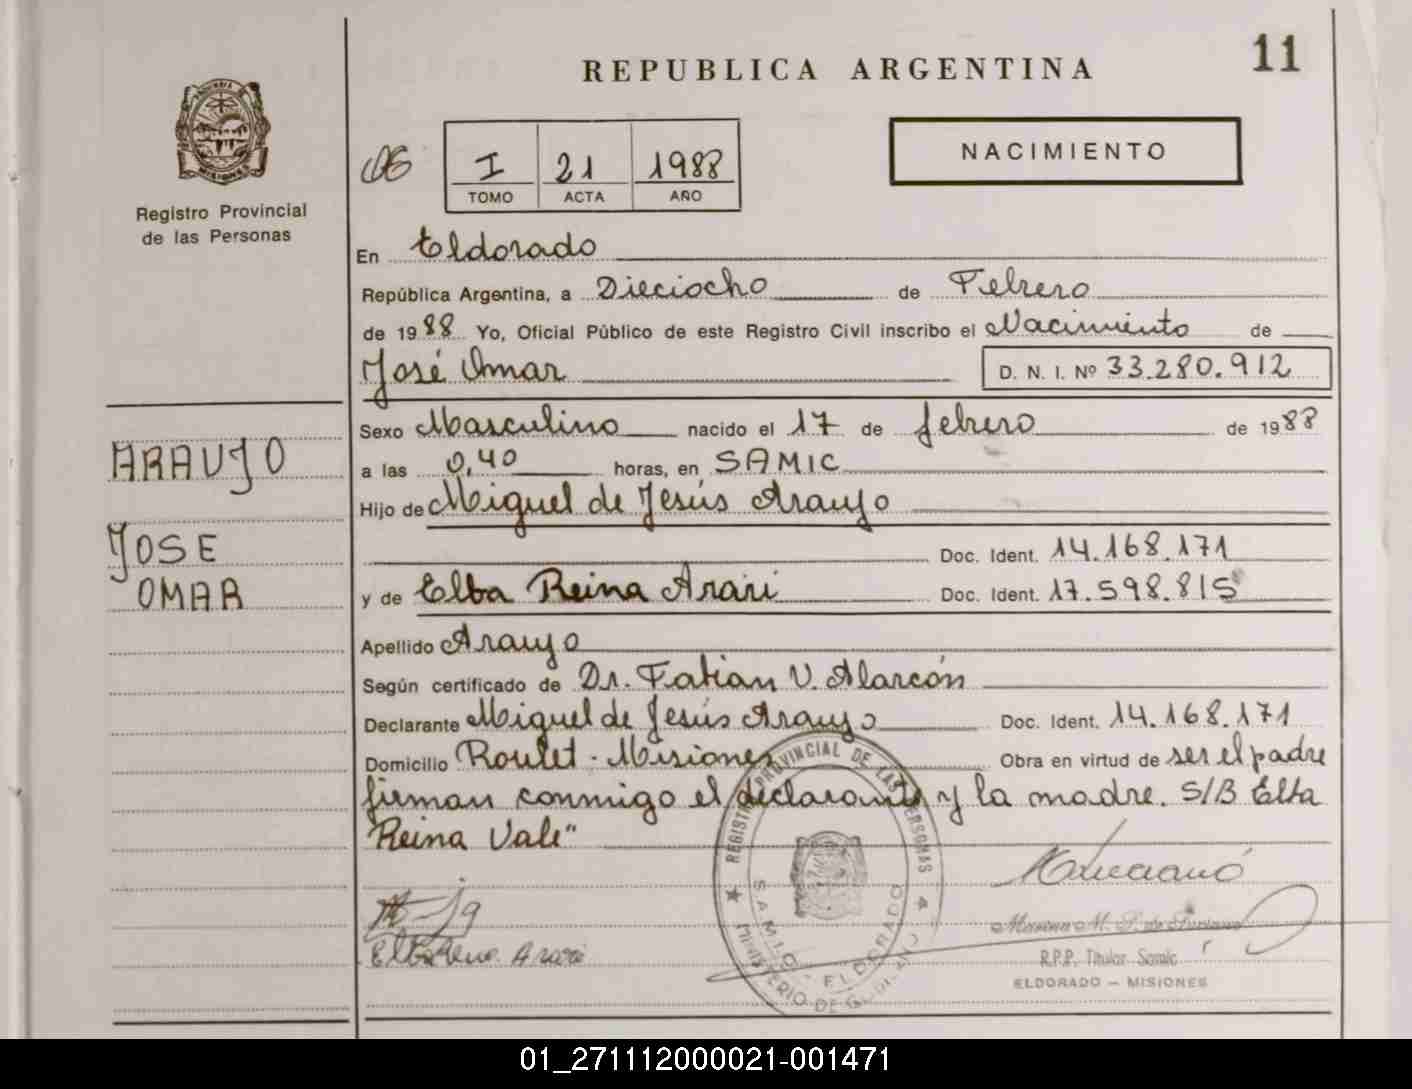 REPUBLICA ARGENTINA
11
MISIONES
Registro Provincial
de las Personas
I 21 1988
TOMO ACTA AÑO
NACIMIENTO
En Eldorado
República Argentina, a Dieciocho de Febrero
de 1988 Yo, Oficial Público de este Registro Civil inscribo el Nacimiento de
José Omar D. N. I. Nº 33.280.912
Sexo Masculino nacido el 17 de febrero de 1988
ARAUJO
a las 0,40 horas, en SAMIC
Hijo de Miguel de Jesús Araujo
JOSE
OMAR
Doc. Ident. 14.168.171
y de Elba Reina Arari Doc. Ident. 17.598.815
Apellido Araujo
Según certificado de Dr. Fabian V. Alarcón
Declarante Miguel de Jesús Araujo Doc. Ident. 14.168.171
Domicilio Roulet - Misiones Obra en virtud de ser el padre
firman conmigo el declarante y la madre. S/B Elba
Reina Vale"
REGISTRO PROVINCIAL DE LAS PERSONAS
SAMIC - ELDORADO
MINISTERIO DE
R.P.P. Titular Samic
ELDORADO - MISIONES
01_271112000021-001471